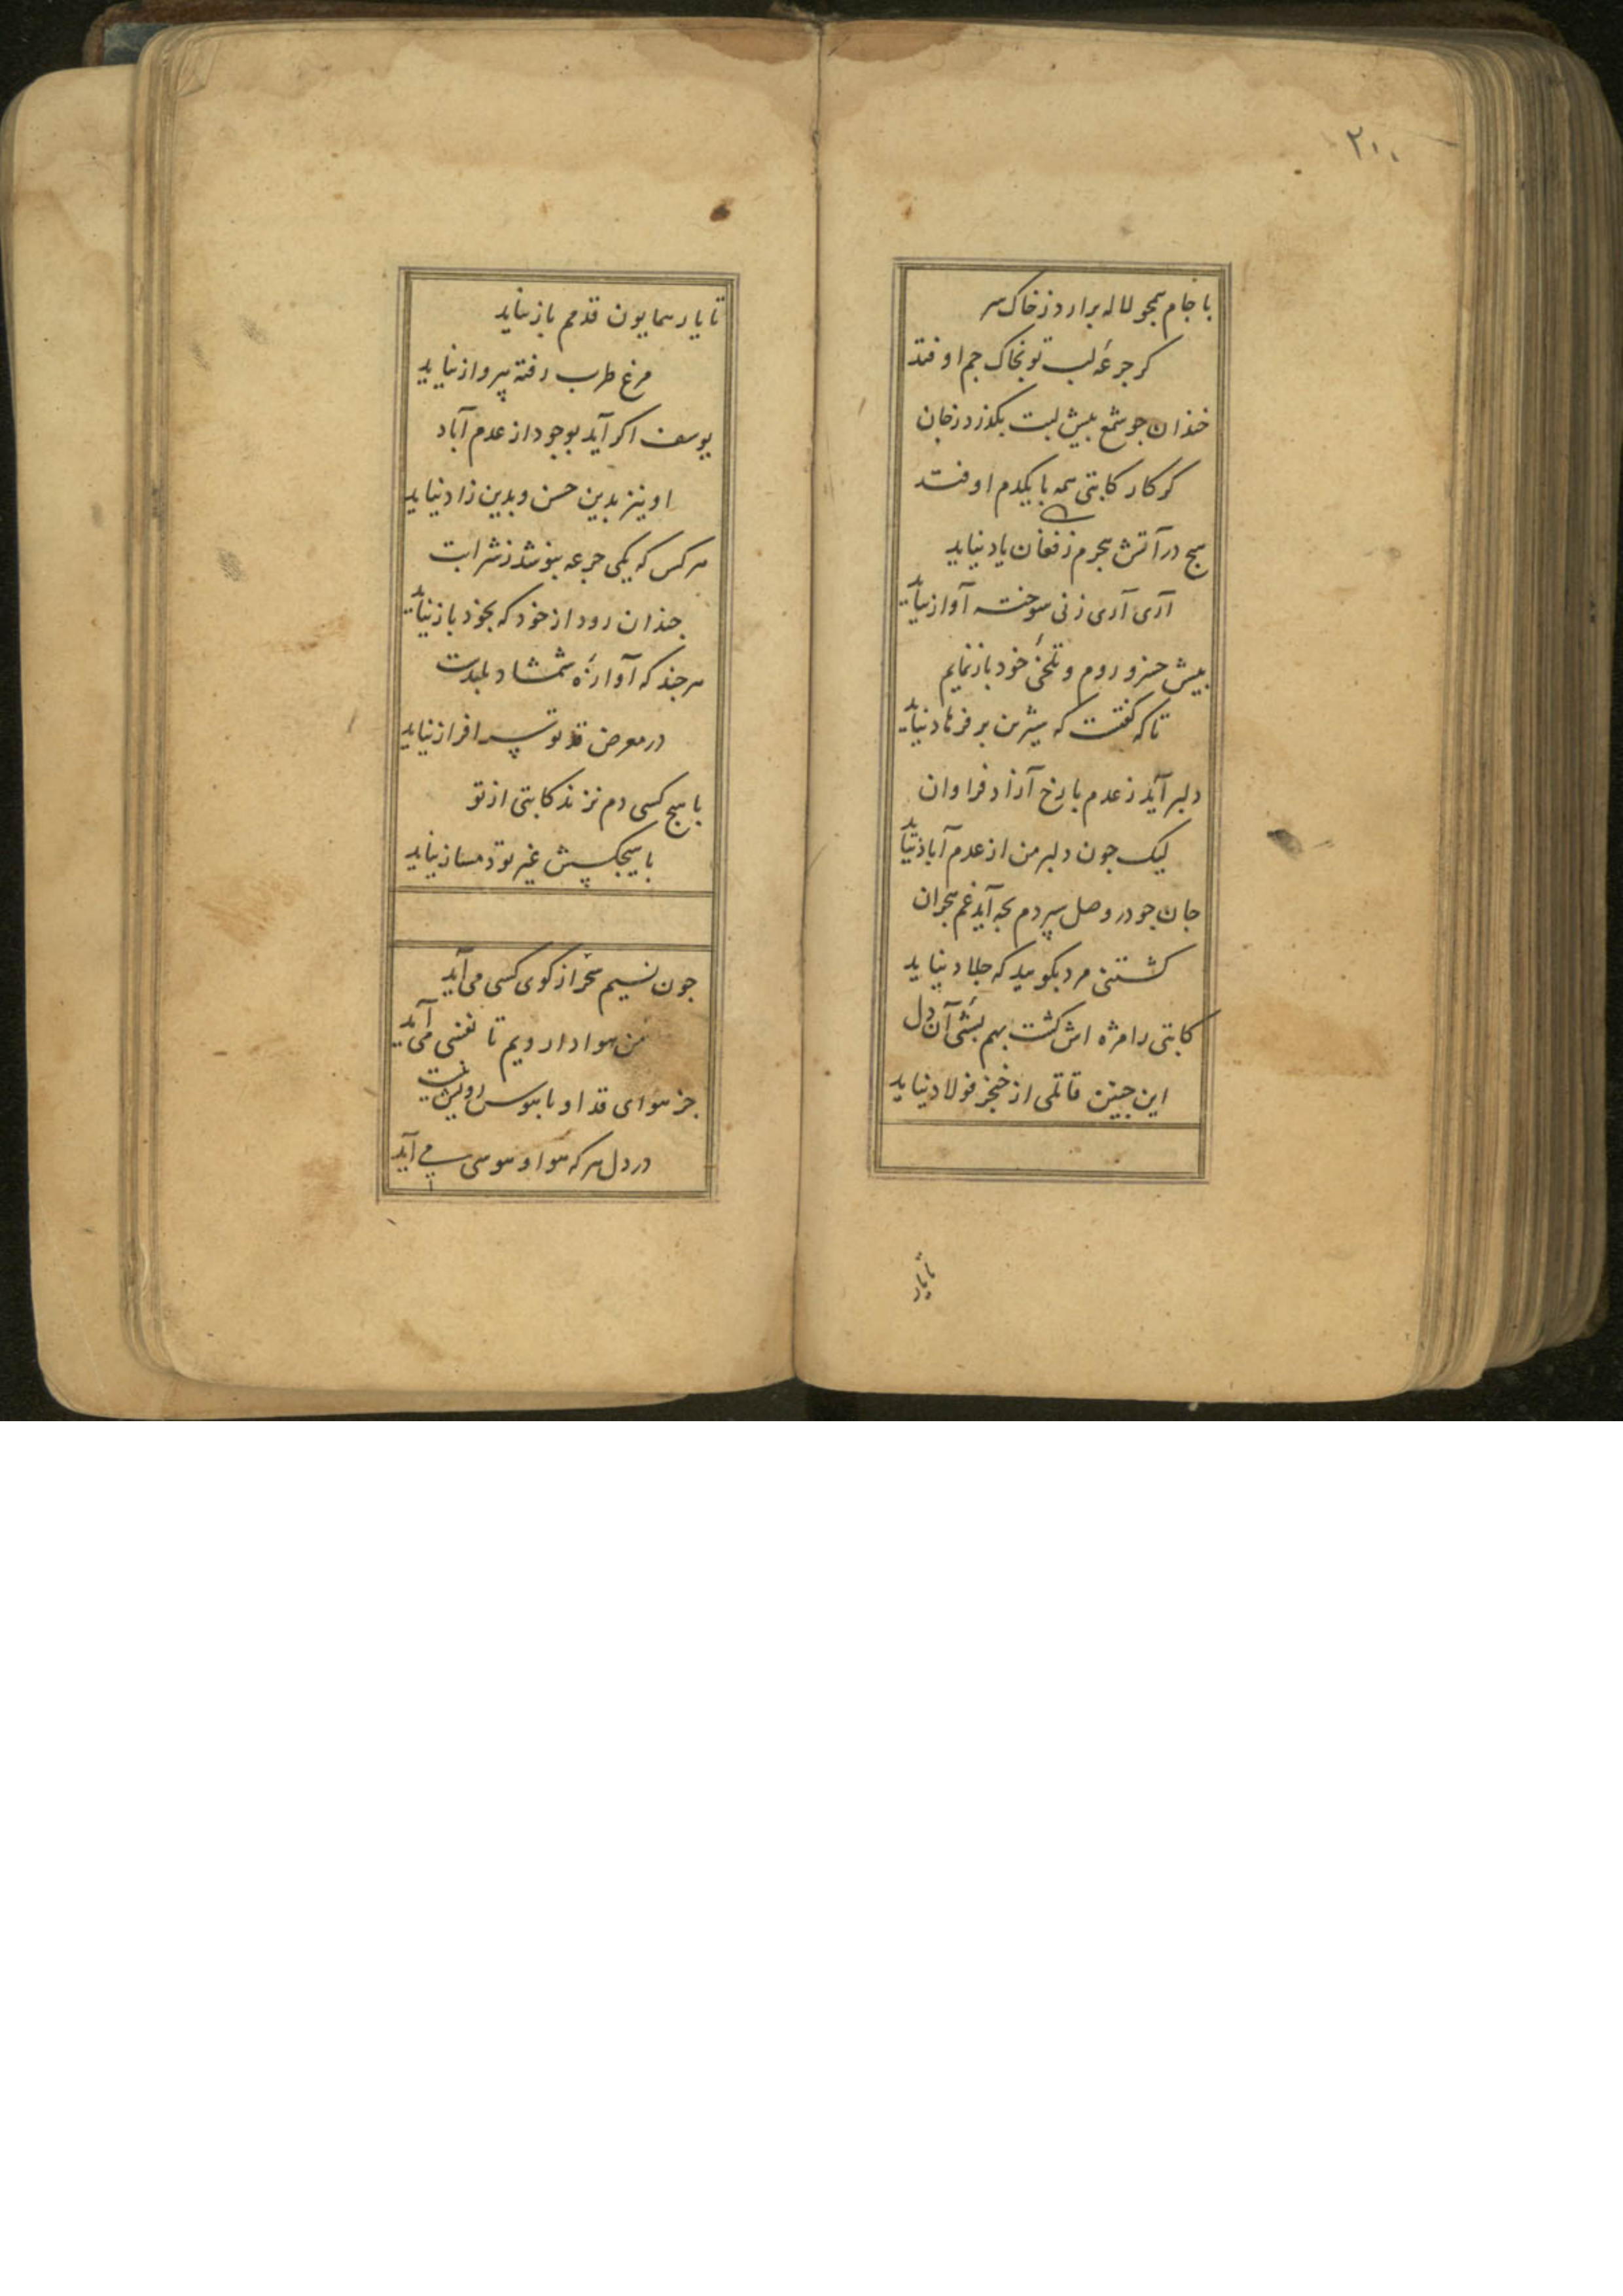 ۲۰۰
با جام همجو لاله برارد ز خاک سر
کر جرعهٔ لب تو بخاک جم اوفتد
خندان جو شمع پیش لبت بکذرد ز جان
کر کار کاتبی همه با یکدم اوفتد
هیج در آتش هجرم ز فغان یاد نیاید
آری آری ز نی سوخته آواز نیاید
پیش خسرو روم و تلخئ خود باز نمایم
تا که کفتست که شیرین بر فرهاد نیاید
دلبر آید ز عدم با رخ آزاد فراوان
لیک جون دلبر من از عدم آباد نیاید
جان جو در وصل سپردم بجه آید غم هجران
کشتنی مرد بکویید که جلاد نیاید
کاتبی را مژه اش کشت بهم بشئ آن دل
این جنین قاتلی از خنجر فولاد نیاید
تا یار
تا یار همایون قدمم باز نیاید
مرغ طرب رفته بپرواز نیاید
یوسف اکر آید بوجود از عدم آباد
او نیز بدین حسن و بدین زاد نیاید
هر کس که یکی جرعه بنوشد ز شرابت
جندان رود از خود که بخود باز نیاید
هر جند که آوازهٔ شمشاد بلندست
در معرض قد تو سرافراز نیاید
با هیج کسی دم نزند کاتبی از تو
با هیجکسش غیر تو دمساز نیاید
جون نسیم سحر از کوی کسی می آید
من هوادار ویم تا نفسی می آید
جز هوای قد او یا هوس رویش نیست
در دل هر که هوا و هوسی می آید